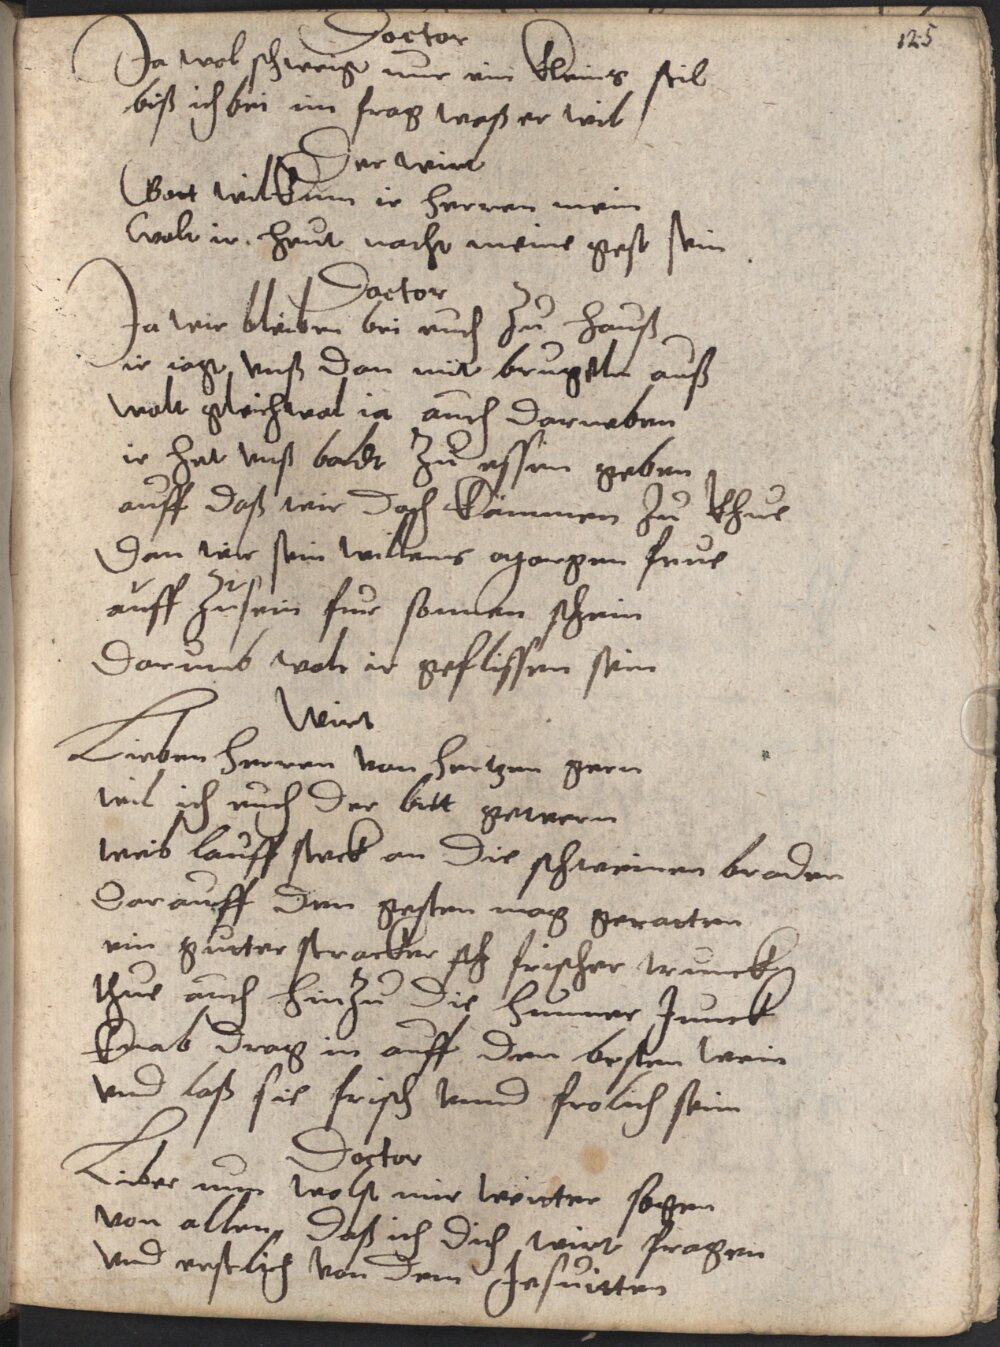 125
Doctor
Ja wol schweigt nur ein kleins stil
biß ich bei im frag waß er wil
Der wirt
Gott wilkum ir herren mein
wolt ir heut nacht meine gest sein
Doctor
Ja wir bleiben bei euch zu hauß
ir jagt unß dan mit brugeln auß
wolt gleichwol ia auch darneben
ir het unß baldt zu essen geben
auff daß wir doch kammen zu rhue
dan wir sein willens morgen frue
auff zu sein fur sonnen schein
darumb wolt ir geflissen sein
Wirt
Lieben herren von hertzen gern
wil ich euch der bitt gewern
weib lauff steck an die schweinen braden
darauff den gesten mag geratten
ein gutter starcker frischer trunck
thue auch hinzu die hunner junck
knab drag in auff den besten wein
und laß sie frisch unnd frolich sein
Doctor
Liber nun wolst mir weitter sagen
von allen daß ich dich wirt fragen
und erstlich von dem Jesuitten